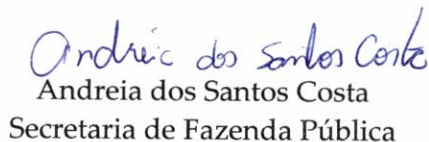 Andreia dos Santos Costa
Andreia dos Santos Costa
Secretaria de Fazenda Pública